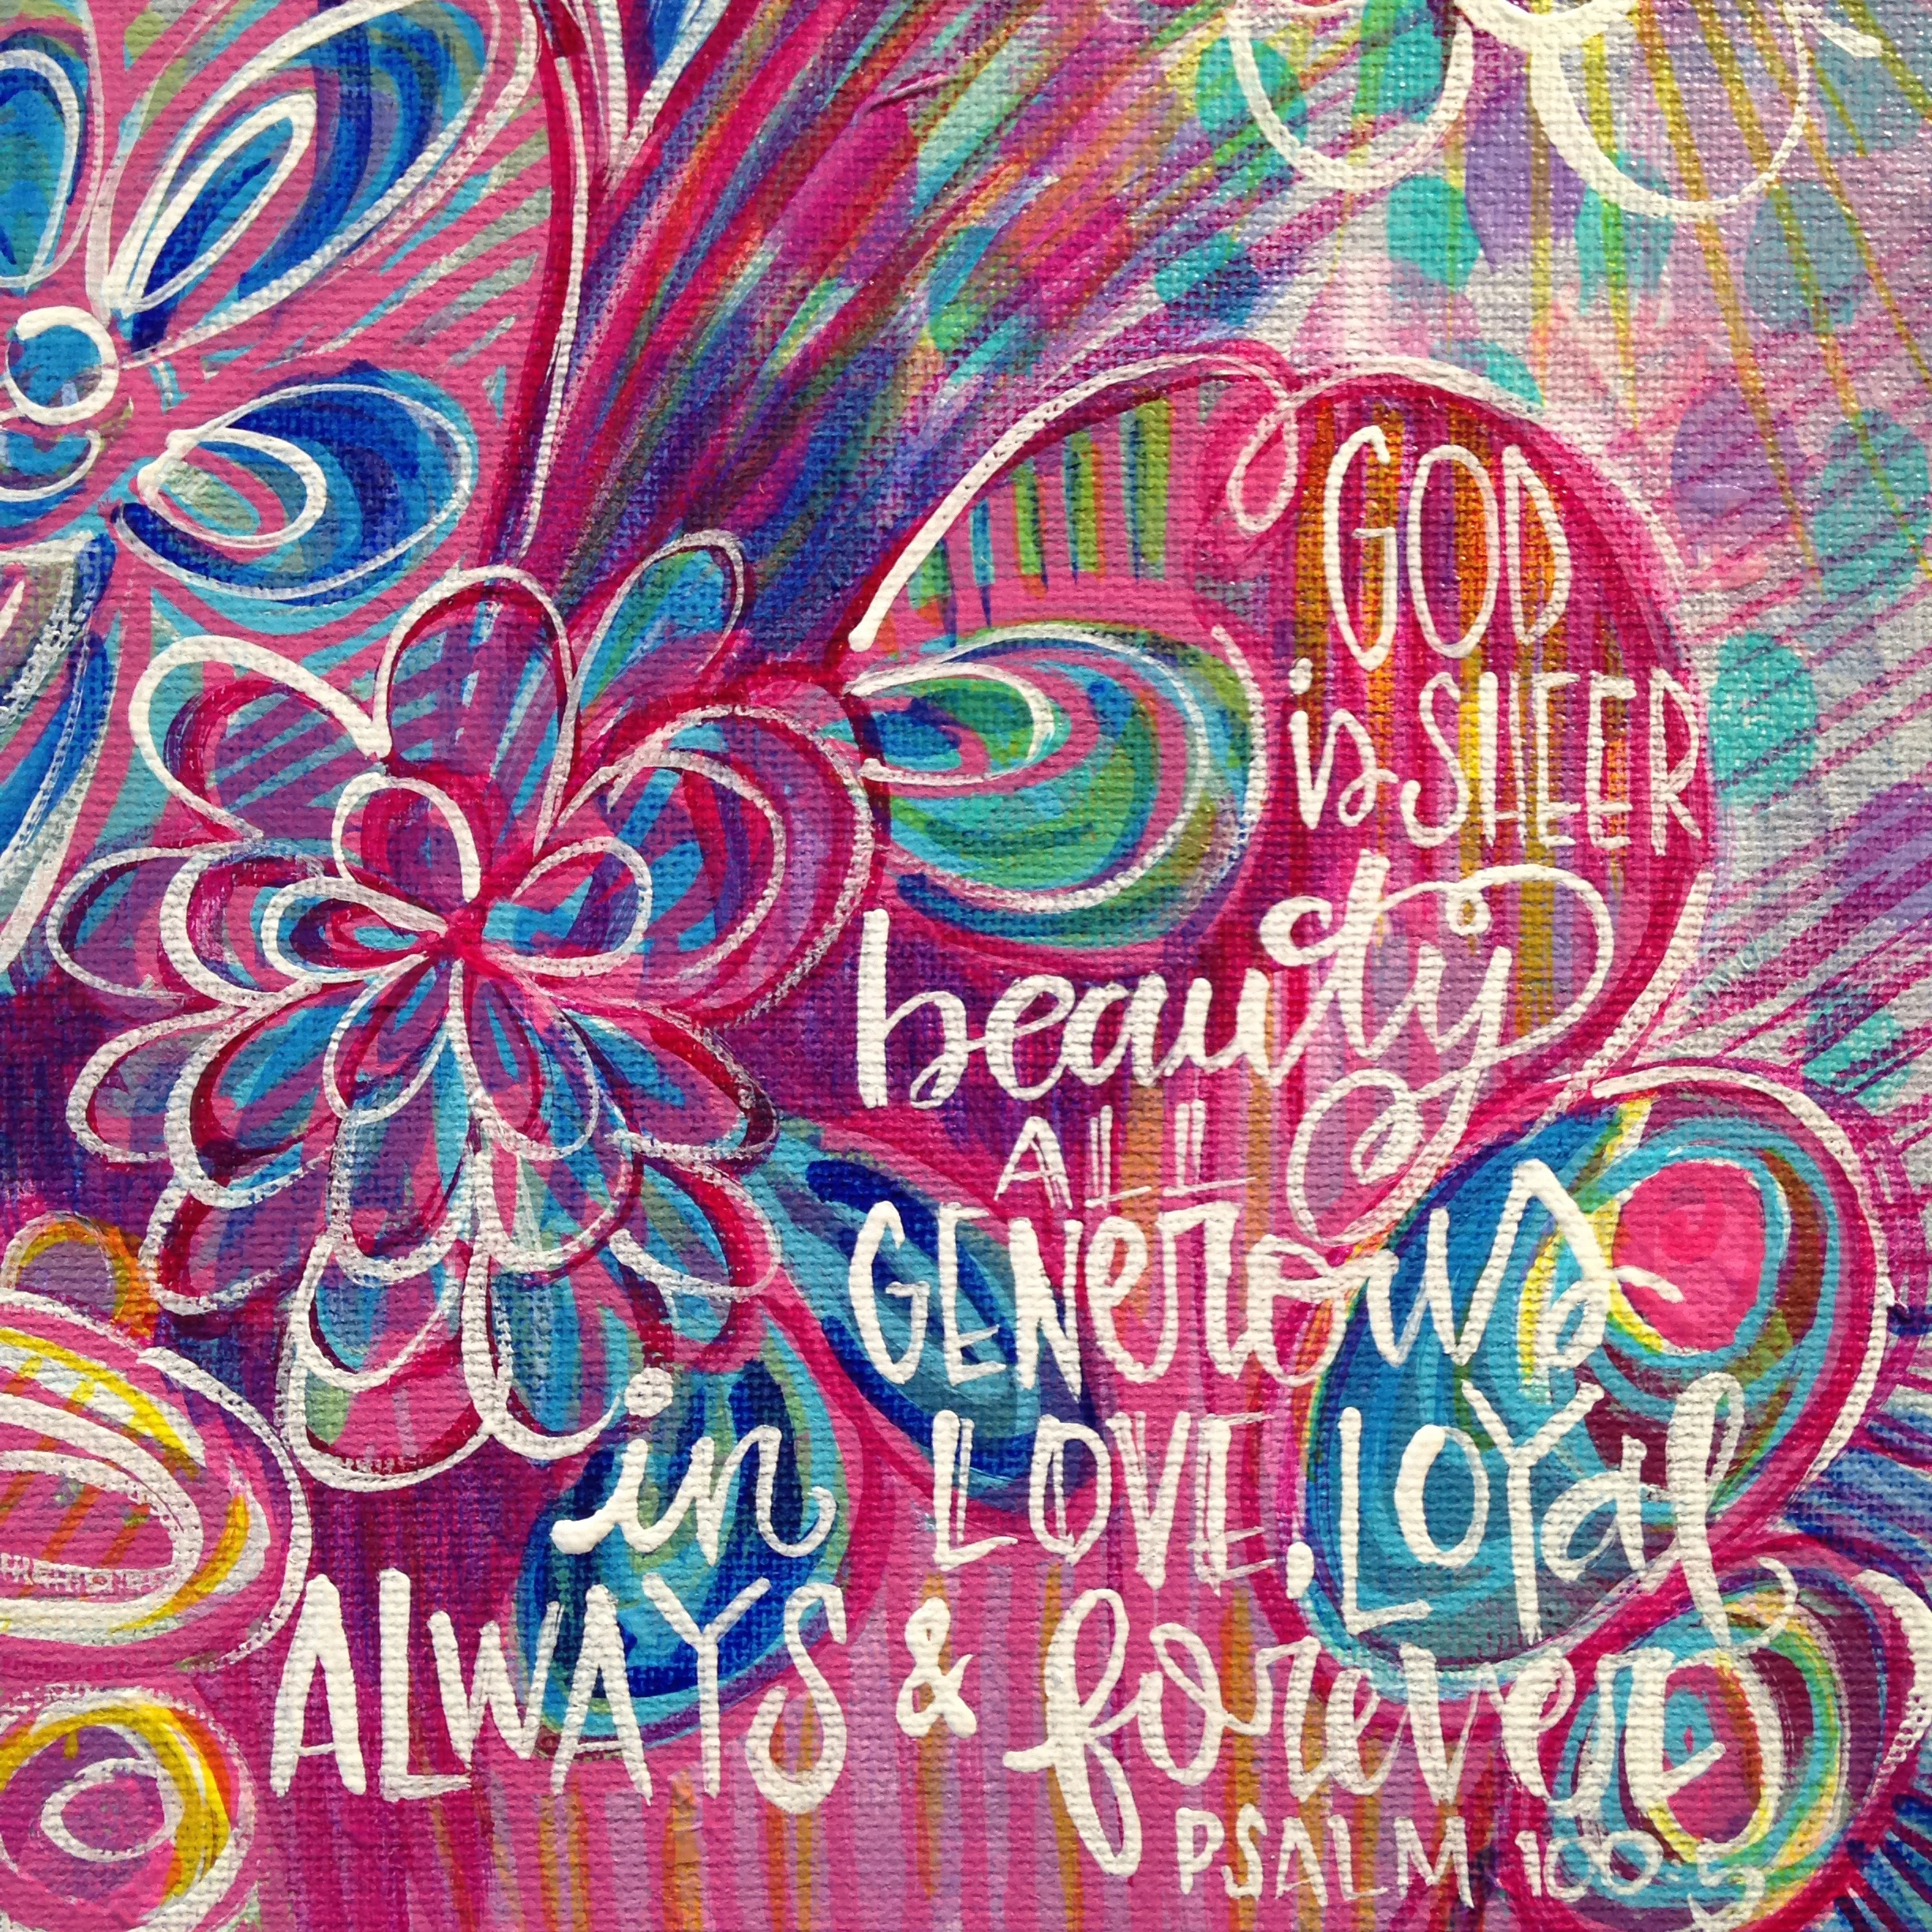 GOD
is SHEER
beauty
ALL
GENeroUS
in LOVE, LOYal,
ALWAYS & forever
PSALM 100:5